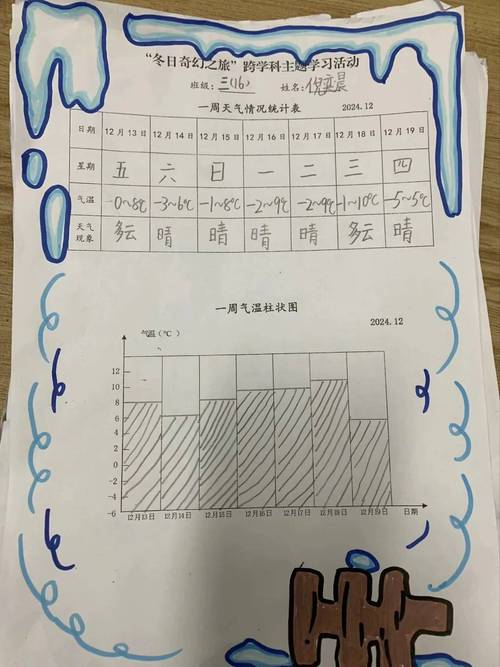 “冬日奇幻之旅”跨学科主题学习活动
班级：三（16） 姓名：倪奕晨
一周天气情况统计表 2024.12
日期 12月13日 12月14日 12月15日 12月16日 12月17日 12月18日 12月19日
星期 五 六 日 一 二 三 四
气温 -0~8℃ -3~6℃ -1~8℃ -2~9℃ -2~9℃ -1~10℃ -5~5℃
天气现象 多云 晴 晴 晴 晴 多云 晴
一周气温柱状图
2024.12
气温（℃）
12
10
8
6
4
2
0
-2
-4
-6
12月13日 12月14日 12月15日 12月16日 12月17日 12月18日 12月19日 日期